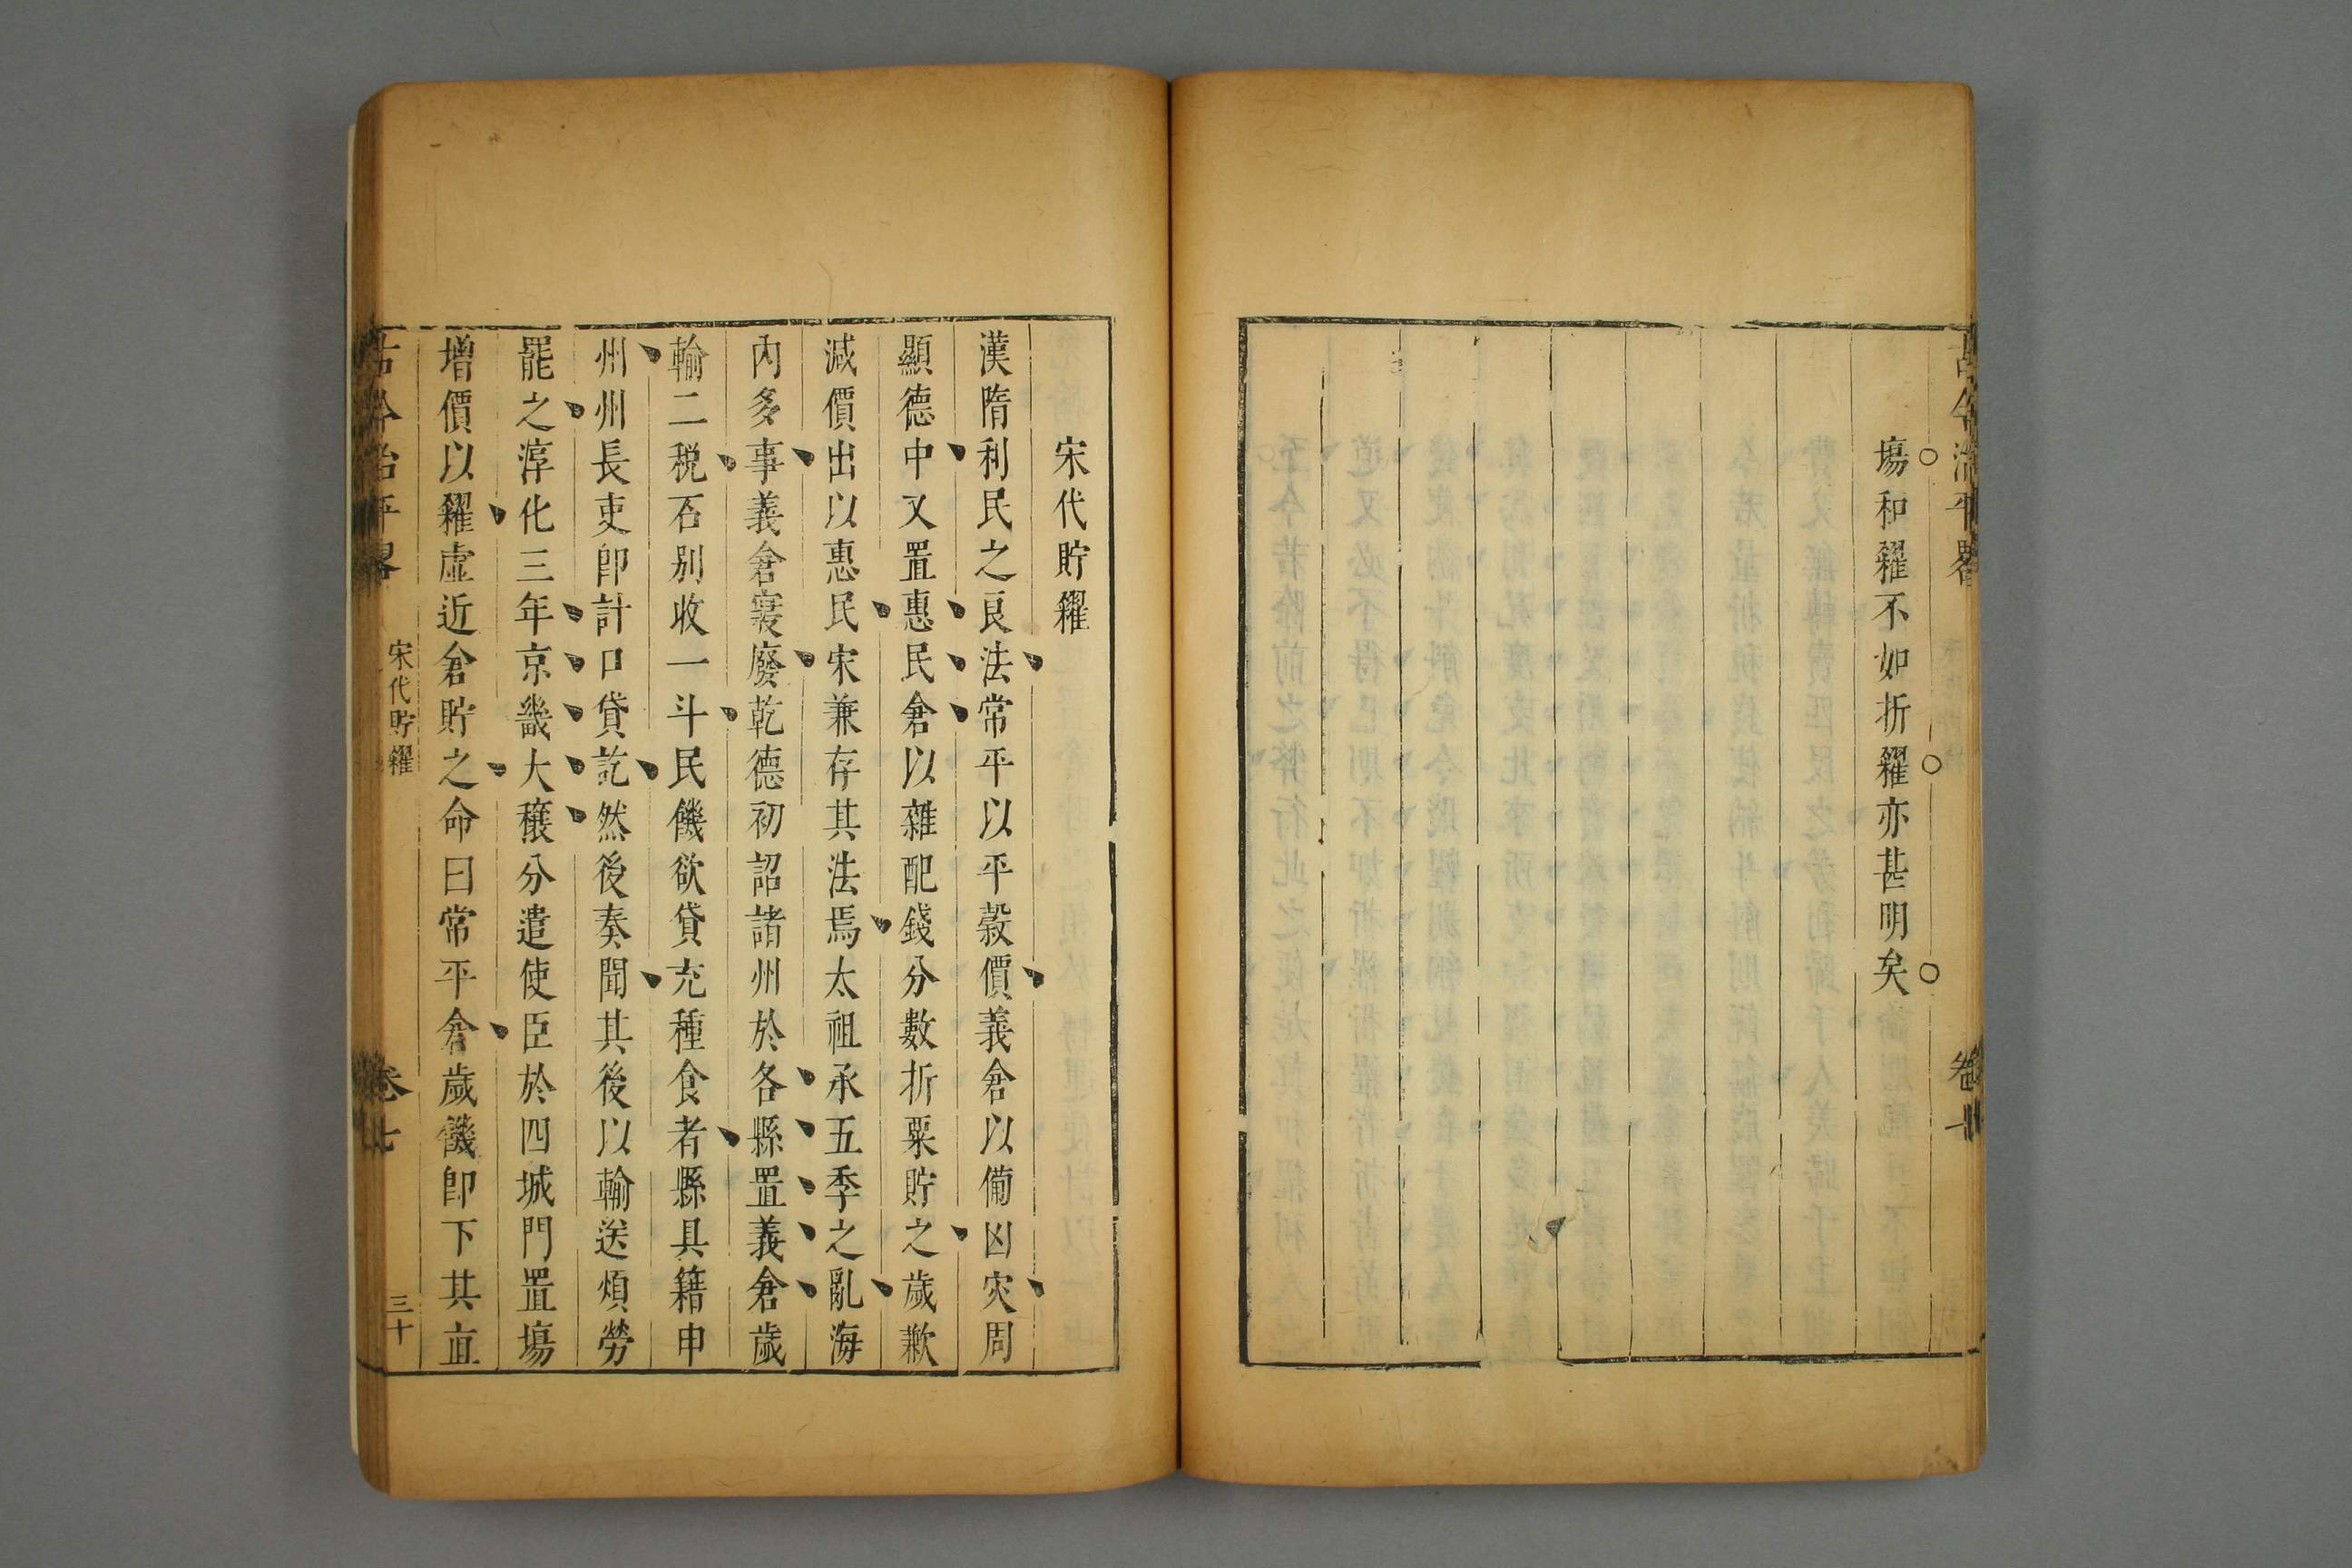 古今治平畧
卷七
塲和糴不如折糴亦甚明矣
宋代貯糴
漢隋利民之良法常平以平穀價義倉以備凶灾周
顯德中又置惠民倉以雜配錢分數折粟貯之歲歉
減價出以惠民宋兼存其法焉太祖承五季之亂海
內多事義倉寖廢乾德初詔諸州於各縣置義倉歲
輸二稅石別收一斗民饑欲貸充種食者縣具籍申
州州長吏卽計口貸訖然後奏聞其後以輸送煩勞
罷之淳化三年京畿大穰分遣使臣於四城門置塲
增價以糴虛近倉貯之命曰常平倉歲饑卽下其直
古今治平畧
宋代貯糴
卷七
三十